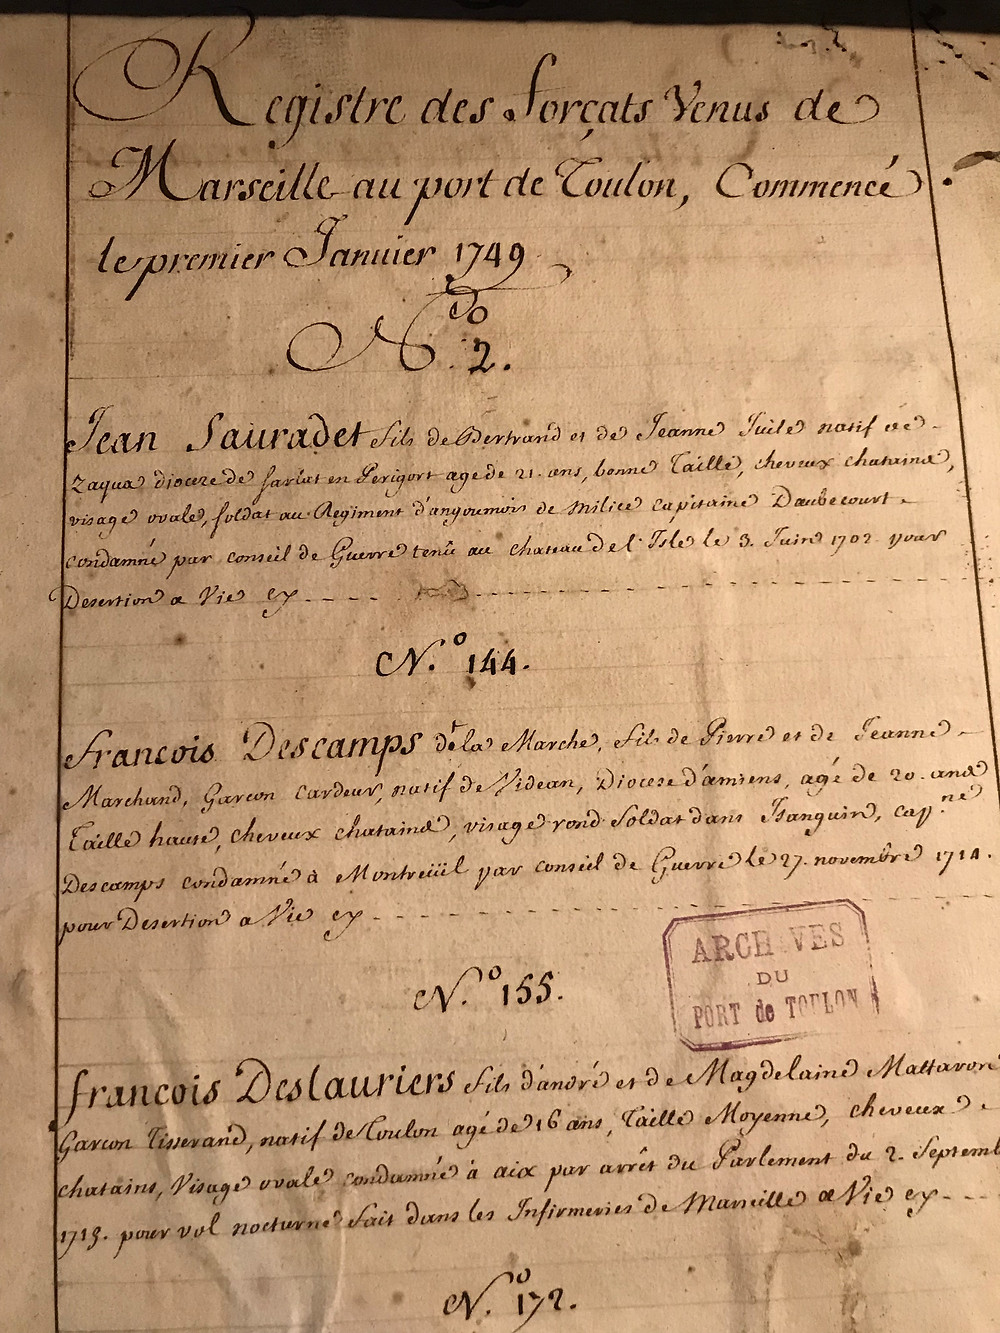 Registre des forçats Venus de
Marseille au port de Toulon, Commencé
le premier Janvier 1749
N.º 2.
Jean Sauradet fils de Bertrand et de Jeanne Juile natif de
Zaqua dioceze de Sarlat en Perigort age de 21. ans, bonne Taille, cheveux chatains,
visage ovale, soldat au Regiment d'angoumois de milice capitaine Daubecourt
condamné par conseil de Guerre tenu au chateau de l'Isle le 3. Juin 1702 pour
Desertion a Vie cy
N.º 144.
francois Descamps de la Marche, fils de Pierre et de Jeanne
Marchand, Garcon cardeur, natif de Videan, Diocese d'amiens, agé de 20. ans
Taille haute, cheveux chatains, visage rond Soldat dans Isanguin, cap.ne
Descamps condamné à Montreüil par conseil de Guerre le 27. novembre 1714.
pour Desertion a Vie cy
ARCHIVES
DU
PORT de TOULON
N.º 155.
francois Deslauriers fils d'andré et de Magdelaine Mattavore
Garcon Tisserand, natif de Toulon agé de 16 ans, Taille Moyenne, cheveux
chatains, Visage ovale condamné à aix par arrêt du Parlement du 2. Septemb
1713. pour vol nocturne fait dans les Infirmeries de Marseille a Vie cy
N.º 172.